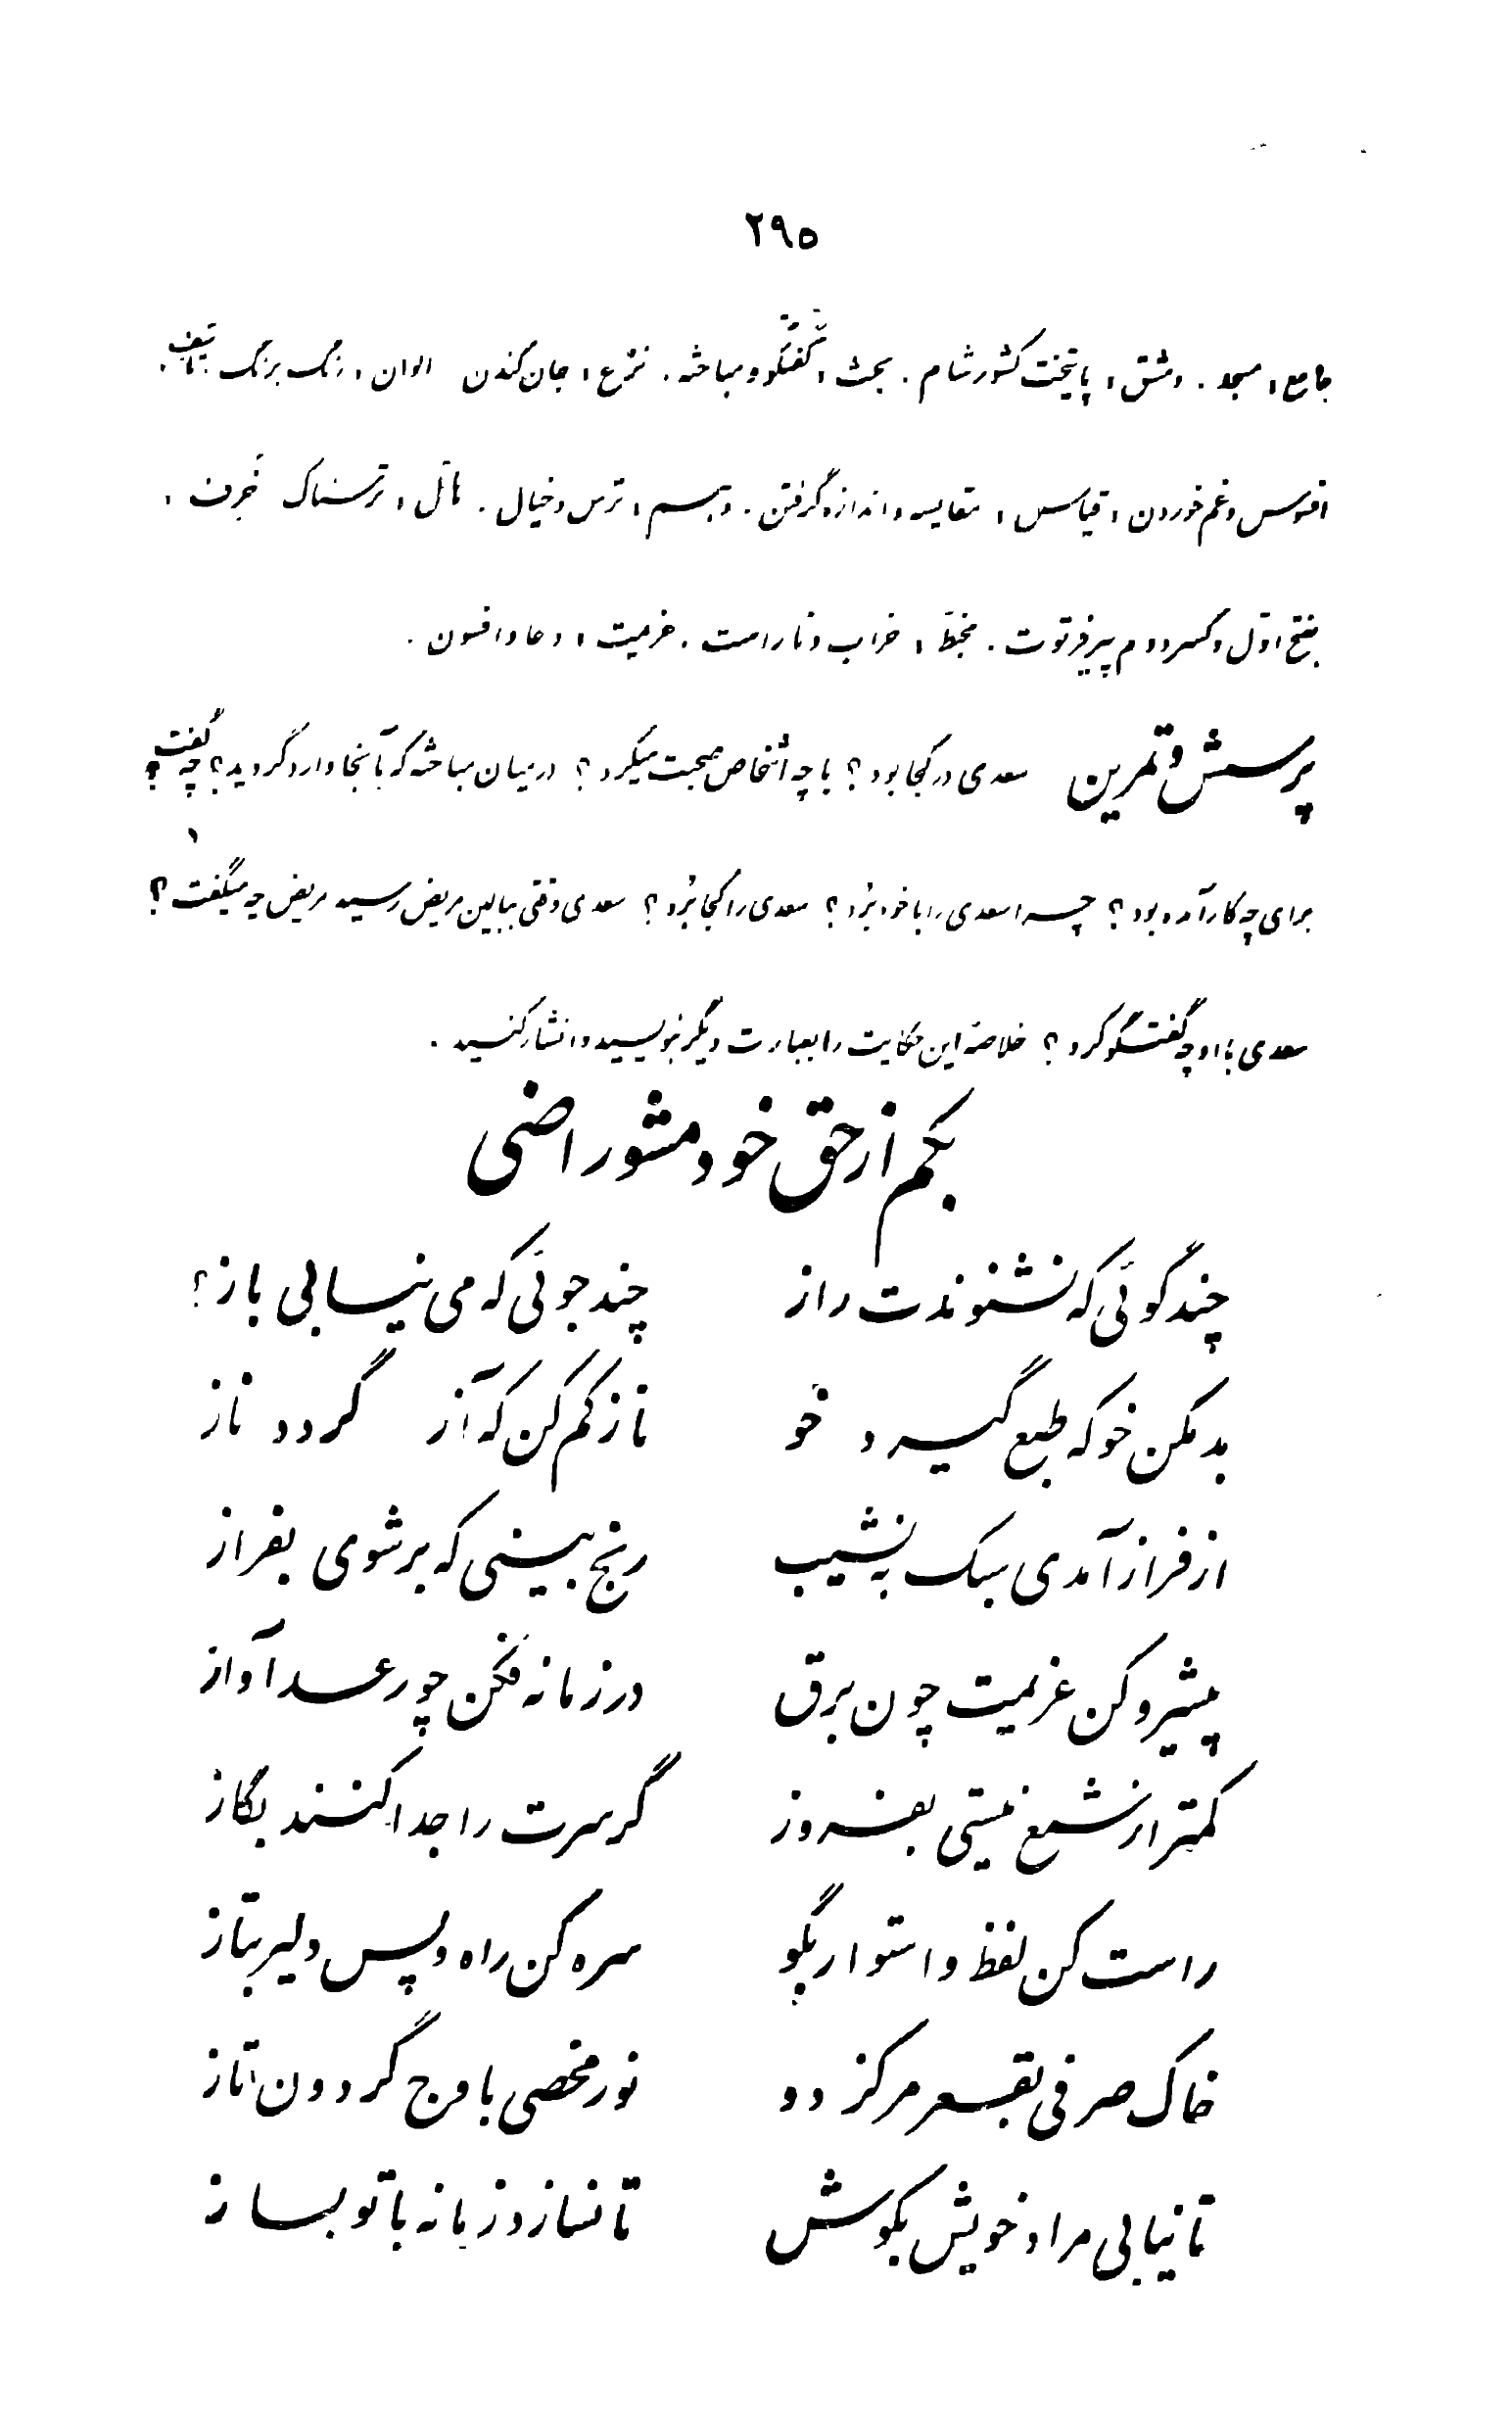 ۲۹۵
جامع، مسجد. دمشق، پایتخت کشور شام. بحث، گفتگو و مباحثه. نزع، جان کندن الوان، رنگ برنگ تأسف،
افسوس و غم خوردن، قیاس، مقایسه و اندازه گرفتن. وهم، ترس و خیال. هائل، ترسناک خرف،
بفتح اول و کسر دوم پیر فرتوت. مخبط، خراب و ناراست. عزیمت، دعا و افسون.
پرسش و تمرین سعدی در کجا بود؟ با چه اشخاص صحبت میکرد؟ در میان مباحثه که بآنجا وارد گردید؟ چه گفت؟
برای چه کار آمده بود؟ چرا سعدی را با خود برد؟ سعدی را کجا برد؟ سعدی وقتی ببالین مریض رسید مریض چه میگفت؟
سعدی با او چه گفتگو کرد؟ خلاصهٔ این حکایت را بعبارت دیگر بنویسید و انشار کنید.
بکم از حق خود مشو راضی
چند گوئی که نشنوندت راز چند جوئی که می نیابی باز؟
بد مکن خو که طبع گیرد خو ناز کم کن که آز گردد ناز
از فراز آمدی سبک به نشیب رنج بینی که بر شوی بفراز
پیشرو کن عزیمت چون برق در زمانه فکن چو رعد آواز
کمتر از شمع نیستی بفروز گر سرت را جدا کنند بگاز
راست کن لفظ و استوار بگو سره کن راه و پس دلیر بتاز
خاک صرفی بقعر مرکز دو نور محضی باوج گردون تاز
تا نیابی مراد خویش بکوش تا نسازد زمانه با تو بساز